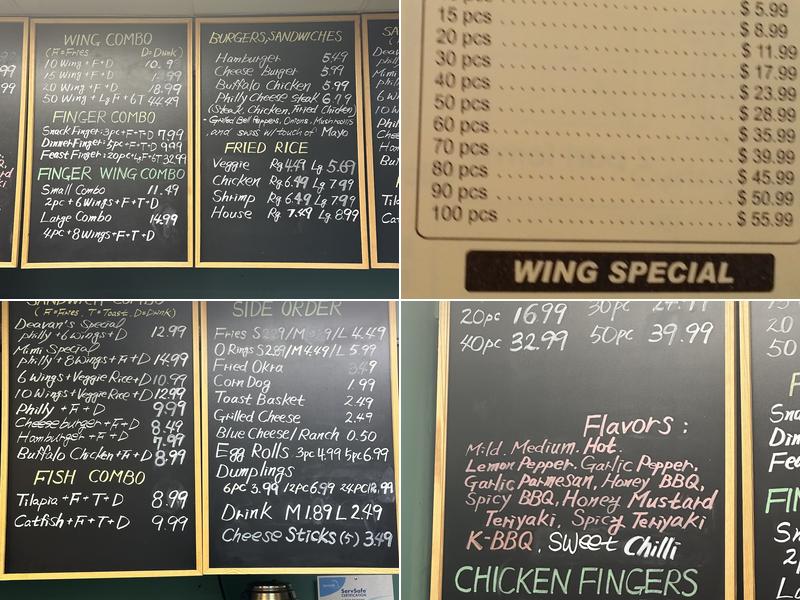 WING COMBO
(F=Fries D=Drink)
10 Wing+F+D 10.9
15 Wing+F+D
20 Wing+F+D 18.99
50 Wing + LgF+6T 44.49
FINGER COMBO
Snack Finger:3pc+F+T+D 7.99
Dinner Finger:5pc+F+T+D 9.99
Feast Finger:20pc+LF+6T 32.99
FINGER WING COMBO
Small Combo 11.49
2pc+6Wings+F+T+D
Large Combo 14.99
4pc+8Wings+F+T+D
BURGERS,SANDWICHES
Hamburger 5.49
Cheese Burger 5.99
Buffalo Chicken 5.99
Philly Cheese steak 6.79
(Steak, Chicken, Fried Chicken)
- Grilled Bell Peppers, Onions, Mushrooms
, and swiss w/touch of Mayo
FRIED RICE
Veggie Rg 4.49 Lg 5.69
Chicken Rg 6.49 Lg 7.99
Shrimp Rg 6.49 Lg 7.99
House Rg 7.49 Lg 8.99
$ 5.99
15 pcs $ 8.99
20 pcs $ 11.99
30 pcs $ 17.99
40 pcs $ 23.99
50 pcs $ 28.99
60 pcs $ 35.99
70 pcs $ 39.99
80 pcs $ 45.99
90 pcs $ 50.99
100 pcs $ 55.99
WING SPECIAL
SANDWICH COMBO
(F=Fries, T=Toast, D=Drink)
Deavan's Special
philly+6wings+D 12.99
Mimi Special
philly+8Wings+F+D 14.99
6 Wings+Veggie Rice+D 10.99
10 Wings+Veggie Rice+D 12.99
Philly +F+D 9.99
Cheeseburger+F+D 8.49
Hamburger+F+D 7.99
Buffalo Chicken+F+D 8.99
FISH COMBO
Tilapia+F+T+D 8.99
Catfish+F+T+D 9.99
SIDE ORDER
Fries S /M /L 4.49
O Rings S /M4.49/L 5.99
Fried Okra
Corn Dog 1.99
Toast Basket 2.49
Grilled Cheese 2.49
Blue Cheese/Ranch 0.50
Egg Rolls 3pc 4.99 5pc 6.99
Dumplings
6pc 3.99 12pc 6.99 24pc 12.99
Drink M 1.89 L 2.49
Cheese Sticks (5) 3.49
ServSafe
CERTIFICATION
20pc 16.99 30pc 24.99
40pc 32.99 50pc 39.99
Flavors:
Mild, Medium, Hot
Lemon Pepper, Garlic Pepper,
Garlic Parmesan, Honey BBQ,
Spicy BBQ, Honey Mustard
Teriyaki, Spicy Teriyaki
K-BBQ, Sweet Chilli
CHICKEN FINGERS